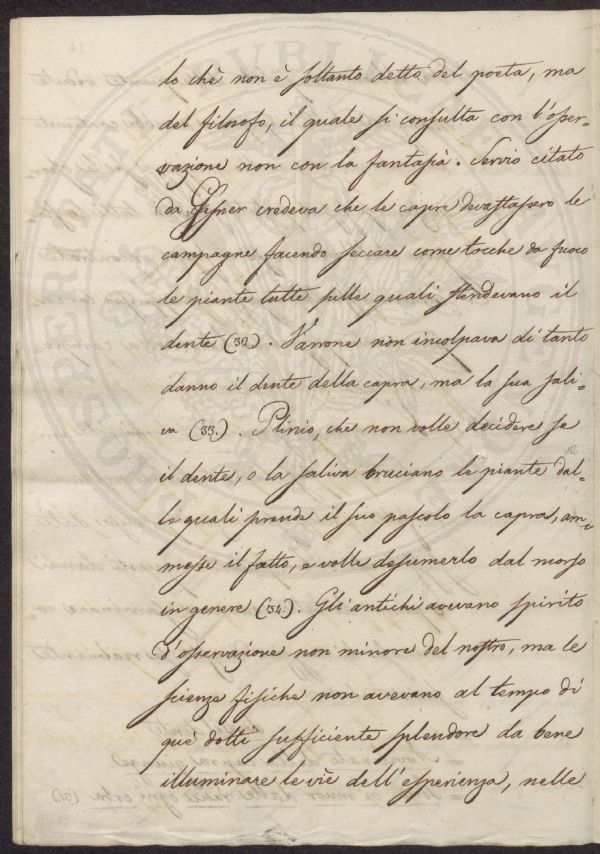 lo chè non è soltanto detto del poeta, ma
del filosofo, il quale si consulta con l'osser-
vazione non con la fantasia. Servio citato
da Gesner credeva che le capre devastassero le
campagne facendo seccare come tocche da fuoco
le piante tutte sulle quali stendevano il
dente (32.). Varrone non incolpava di tanto
danno il dente della capra, ma la sua sali-
va (33.). Plinio, che non volle decidere se
il dente, o la saliva bruciano le piante dal-
le quali prende il suo pascolo la capra, am-
messe il fatto, e volle desumerlo dal morso
in genere (34.). Gli antichi avevano spirito
d'osservazione non minore del nostro, ma le
scienze fisiche non avevano al tempo di
què dotti sufficiente splendore da bene
illuminare le vie dell'esperienza, nelle